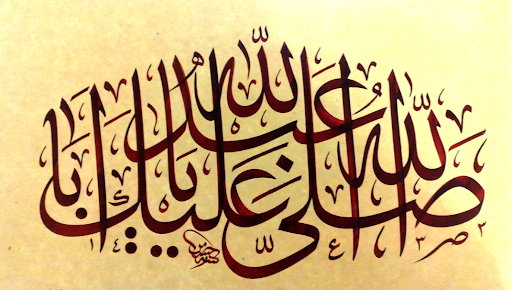 صلى الله عليك يا ابا عبد الله